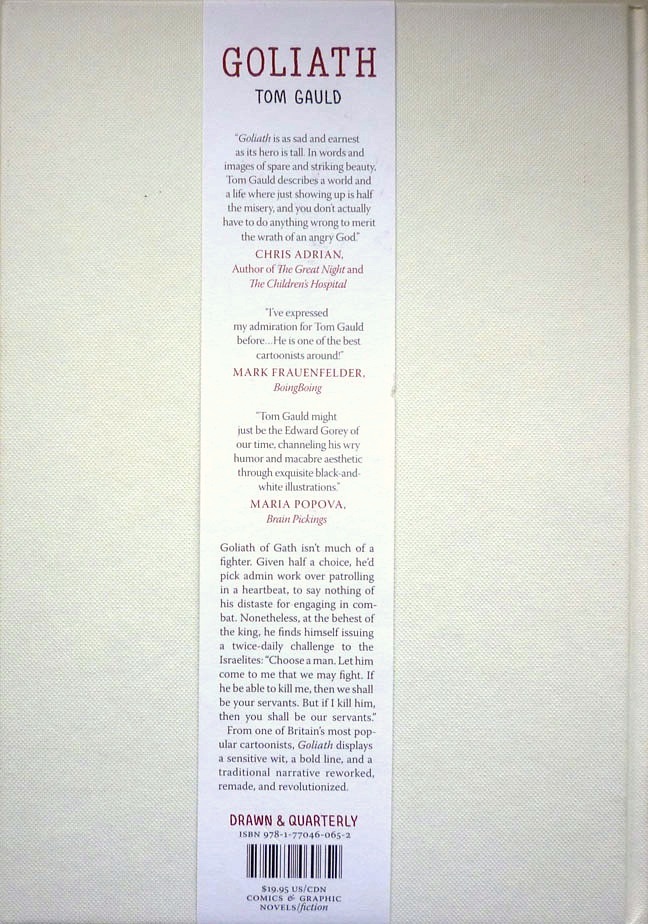 GOLIATH
TOM GAULD
“Goliath is as sad and earnest
as its hero is tall. In words and
images of spare and striking beauty,
Tom Gauld describes a world and
a life where just showing up is half
the misery, and you don’t actually
have to do anything wrong to merit
the wrath of an angry God.”
CHRIS ADRIAN,
Author of The Great Night and
The Children’s Hospital
“I’ve expressed
my admiration for Tom Gauld
before...He is one of the best
cartoonists around!”
MARK FRAUENFELDER,
BoingBoing
“Tom Gauld might
just be the Edward Gorey of
our time, channeling his wry
humor and macabre aesthetic
through exquisite black-and-
white illustrations.”
MARIA POPOVA,
Brain Pickings
Goliath of Gath isn’t much of a
fighter. Given half a choice, he’d
pick admin work over patrolling
in a heartbeat, to say nothing of
his distaste for engaging in com-
bat. Nonetheless, at the behest of
the king, he finds himself issuing
a twice-daily challenge to the
Israelites: “Choose a man. Let him
come to me that we may fight. If
he be able to kill me, then we shall
be your servants. But if I kill him,
then you shall be our servants.”
From one of Britain’s most pop-
ular cartoonists, Goliath displays
a sensitive wit, a bold line, and a
traditional narrative reworked,
remade, and revolutionized.
DRAWN & QUARTERLY
ISBN 978-1-77046-065-2
$19.95 US/CDN
COMICS & GRAPHIC
NOVELS/fiction